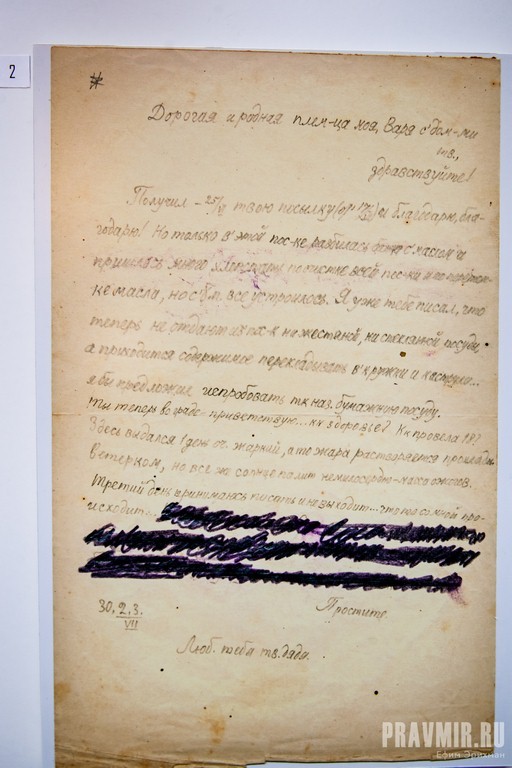 2
#
Дорогая и родная плем-ца моя, Варя с дом-ми
тв.,
здравствуйте!
Получил – 25/ твою посылку (от 17/) и благодарю, бла-
годарю! Но только в этой пос-ке разбилась с маслом и
пришлось много хлопотать по чистке всей пос-ки и по
ке масла, но с Б.м. все устроилось. Я уже тебе писал, что
теперь не отдают из пос-к ни жестяной, ни стеклянной посуды,
а приходится содержимое перекладывать в кружки и кастрюли...
я бы предложил испробовать тк наз. бумажную посуду.
Ты теперь во граде – приветствую... кк здоровье? Кк провела 18?
Здесь выдался 1 день оч. жаркий, а то жара растворяется прохладн.
ветерком, но все же солнце палит немилосердно – масса ожогов.
Третий день принимаюсь писать и не выходит... что то со мной про-
исходит...
30, 2, 3.
VII
Простите
Люб. тебя тв. дядя.
PRAVMIR.RU
Ефим Эрихман